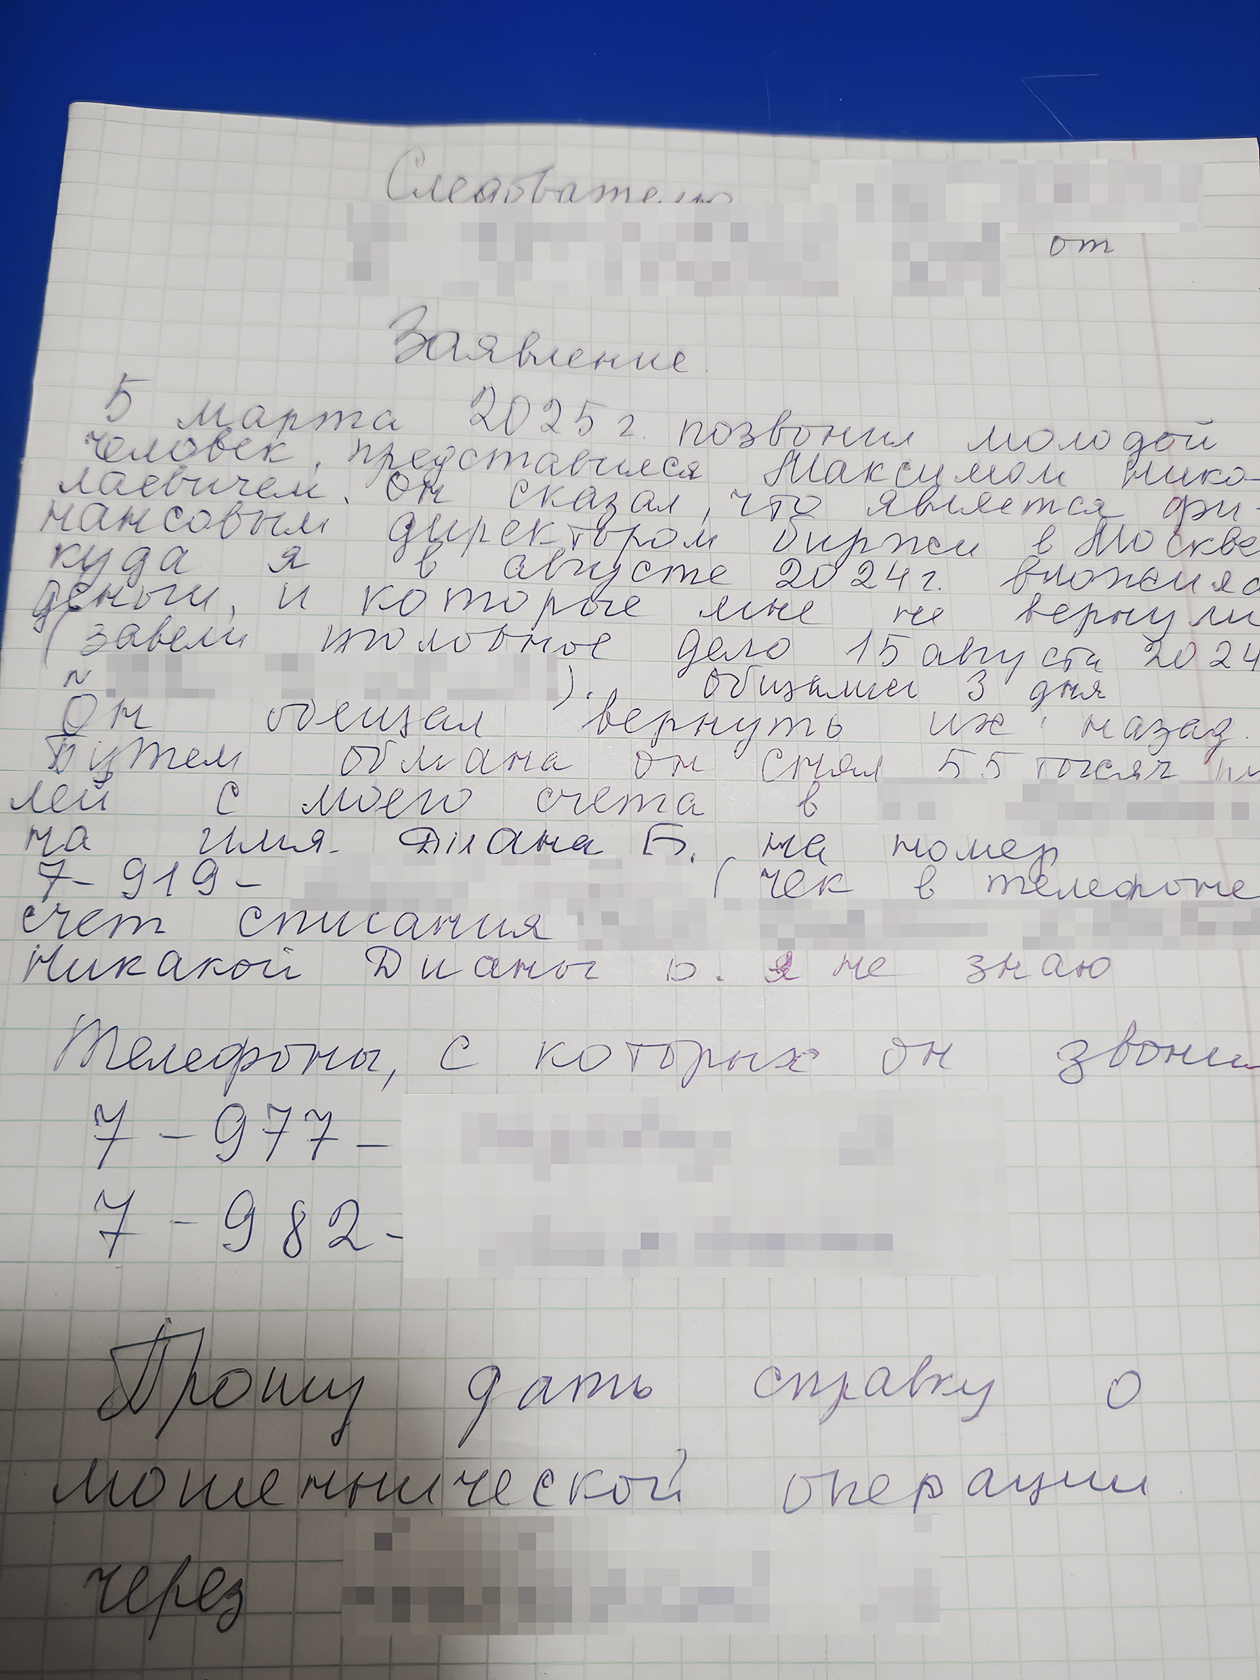 Следователю
от
Заявление
5 марта 2025 г. позвонил молодой
человек, представился Максимом Нико-
лаевичем. Он сказал, что является фи-
нансовым директором биржи в Москве
куда я в августе 2024 г. вложила
деньги, и которые мне не вернули
(завели уголовное дело 15 августа 2024
N ). общались 3 дня
Он обещал вернуть их назад.
Путем обмана он снял 55 тысяч
лей с моего счета в
на имя Диана Б. на номер
7-919- (чек в телефоне
счет списания
Никакой Дианы Б. я не знаю
Телефоны, с которых он звони
7-977-
7-982-
Прошу дать справку о
мошеннической операции
через